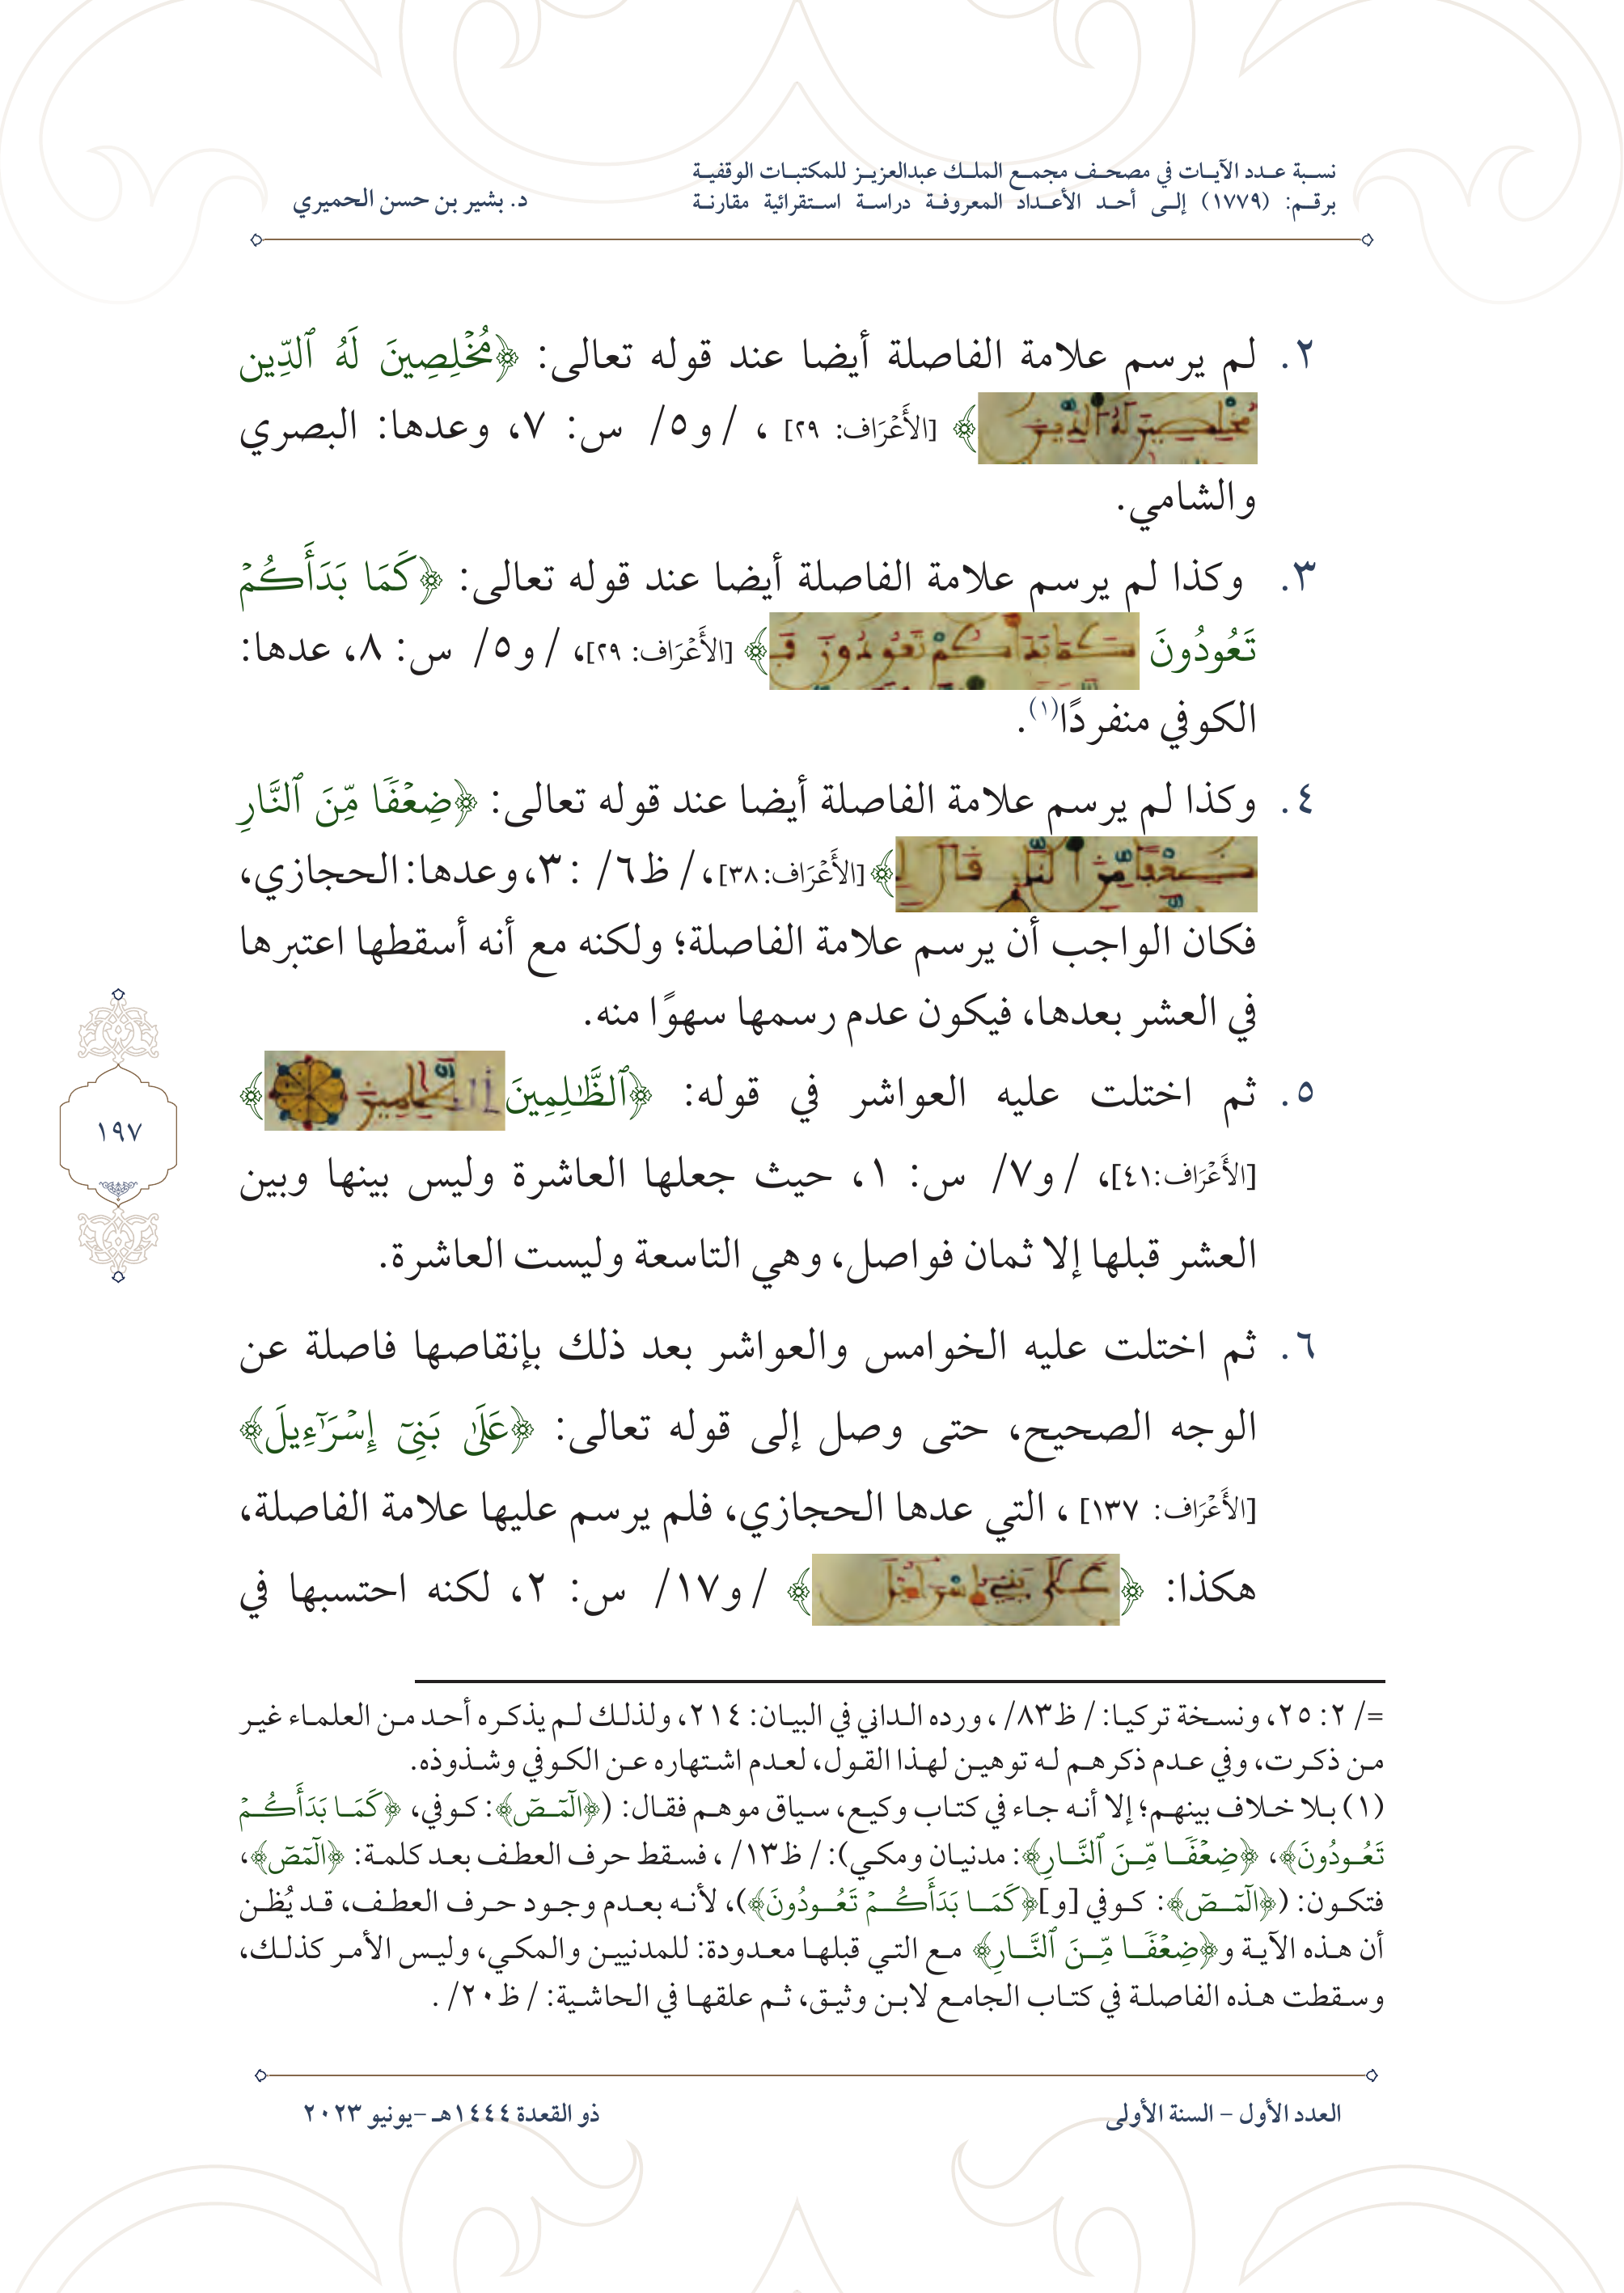 نسبة عدد الآيات في مصحف مجمع الملك عبدالعزيز للمكتبات الوقفية
برقم: (١٧٧٩) إلى أحد الأعداد المعروفة دراسة استقرائية مقارنة
د. بشير بن حسن الحميري
٢. لم يرسم علامة الفاصلة أيضا عند قوله تعالى: ﴿مُخۡلِصِينَ لَهُ ٱلدِّين
مخلصين له الدين﴾ [الأَعۡرَاف: ٢٩] ، /و٥/ س: ٧، وعدها: البصري
والشامي.
٣. وكذا لم يرسم علامة الفاصلة أيضا عند قوله تعالى: ﴿كَمَا بَدَأَكُمۡ
تَعُودُونَ كما بدأكم تعودون فر﴾ [الأَعۡرَاف: ٢٩]، /و٥/ س: ٨، عدها:
الكوفي منفردًا(١).
٤. وكذا لم يرسم علامة الفاصلة أيضا عند قوله تعالى: ﴿ضِعۡفٗا مِّنَ ٱلنَّارِ
ضعفا من النار قال ل﴾ [الأَعۡرَاف: ٣٨]، /ظ٦/ : ٣، وعدها: الحجازي،
فكان الواجب أن يرسم علامة الفاصلة؛ ولكنه مع أنه أسقطها اعتبرها
في العشر بعدها، فيكون عدم رسمها سهوًا منه.
٥. ثم اختلت عليه العواشر في قوله: ﴿ٱلظَّٰلِمِينَ الظلمين﴾
[الأَعۡرَاف:٤١]، /و٧/ س: ١، حيث جعلها العاشرة وليس بينها وبين
العشر قبلها إلا ثمان فواصل، وهي التاسعة وليست العاشرة.
٦. ثم اختلت عليه الخوامس والعواشر بعد ذلك بإنقاصها فاصلة عن
الوجه الصحيح، حتى وصل إلى قوله تعالى: ﴿عَلَىٰ بَنِيٓ إِسۡرَٰٓءِيلَ﴾
[الأَعۡرَاف: ١٣٧] ، التي عدها الحجازي، فلم يرسم عليها علامة الفاصلة،
هكذا: ﴿على بني إسرائيل﴾ /و١٧/ س: ٢، لكنه احتسبها في
١٩٧
=/ ٢: ٢٥، ونسخة تركيا: /ظ٨٣/ ، ورده الداني في البيان: ٢١٤، ولذلك لم يذكره أحد من العلماء غير
من ذكرت، وفي عدم ذكرهم له توهين لهذا القول، لعدم اشتهاره عن الكوفي وشذوذه.
(١) بلا خلاف بينهم؛ إلا أنه جاء في كتاب وكيع، سياق موهم فقال: (﴿الٓمٓصٓ﴾: كوفي، ﴿كَمَا بَدَأَكُمۡ
تَعُودُونَ﴾، ﴿ضِعۡفٗا مِّنَ ٱلنَّارِ﴾: مدنيان ومكي): /ظ١٣/ ، فسقط حرف العطف بعد كلمة: ﴿الٓمٓصٓ﴾،
فتكون: (﴿الٓمٓصٓ﴾: كوفي [و]﴿كَمَا بَدَأَكُمۡ تَعُودُونَ﴾)، لأنه بعدم وجود حرف العطف، قد يُظن
أن هذه الآية و﴿ضِعۡفٗا مِّنَ ٱلنَّارِ﴾ مع التي قبلها معدودة: للمدنيين والمكي، وليس الأمر كذلك،
وسقطت هذه الفاصلة في كتاب الجامع لابن وثيق، ثم علقها في الحاشية: /ظ٢٠/ .
العدد الأول – السنة الأولى
ذو القعدة ١٤٤٤هـ –يونيو ٢٠٢٣